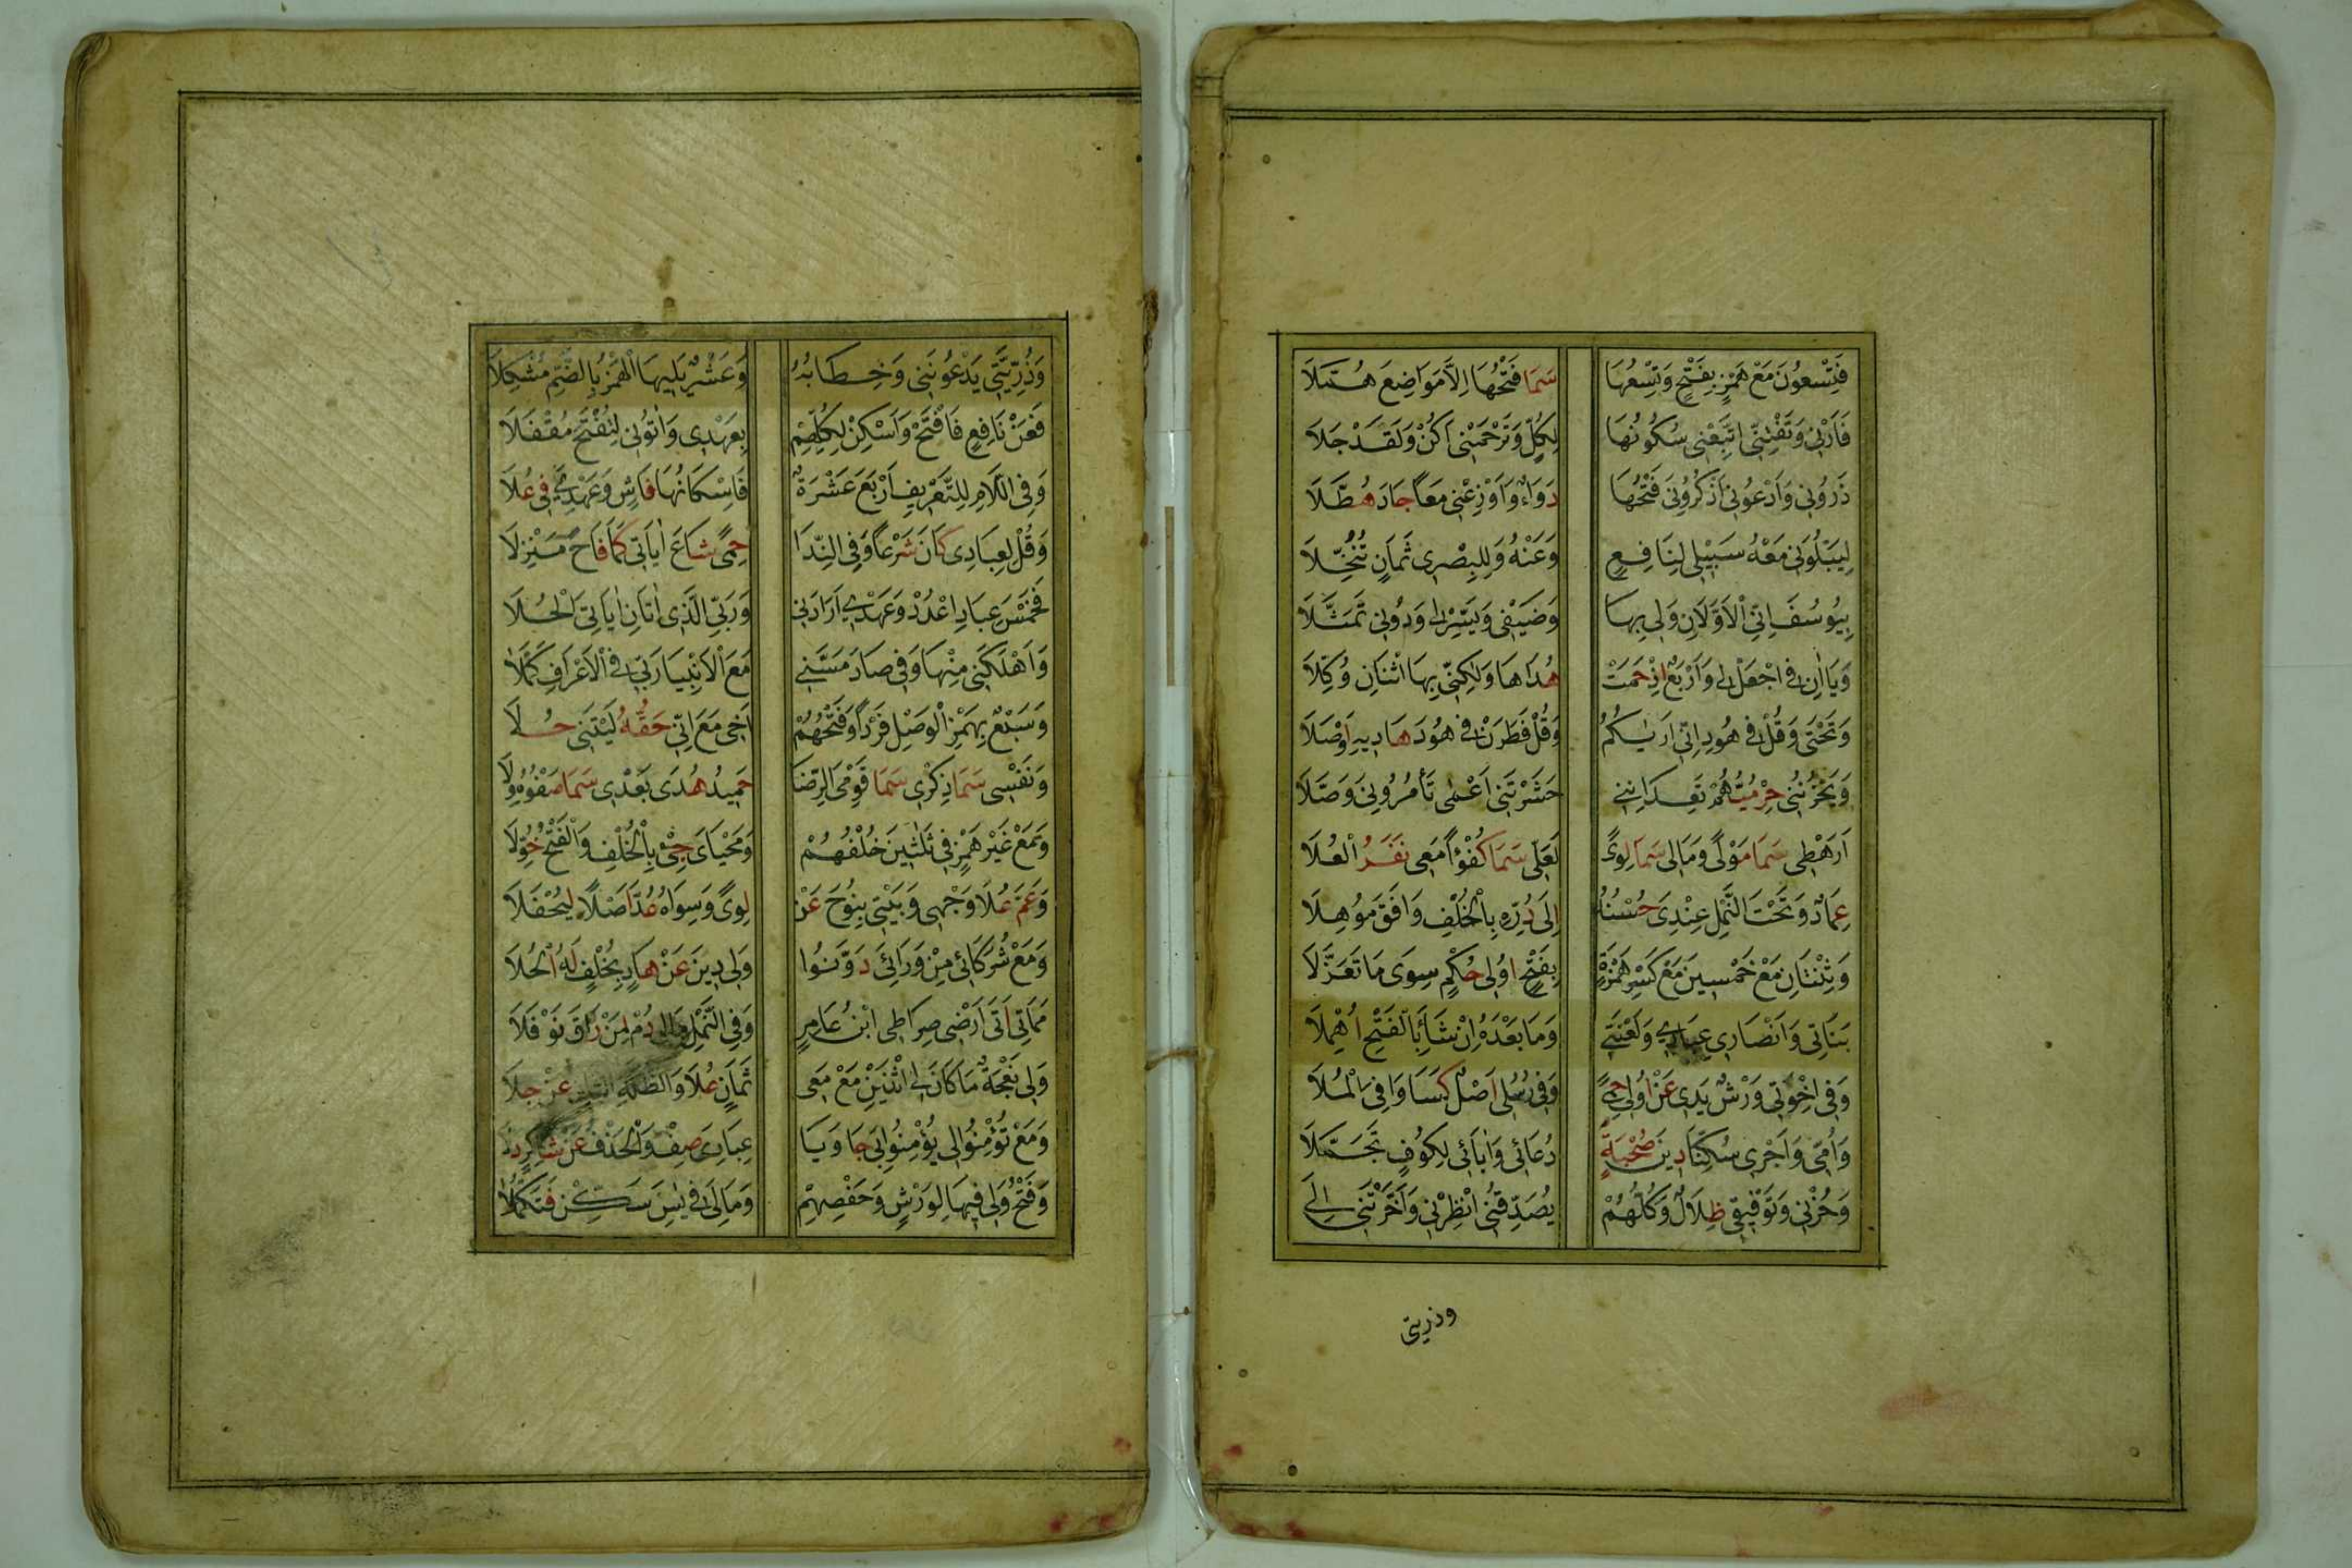 فَتِسْعُونَ مَعْ هَمْزٍ بِفَتْحٍ وَتِسْعُهَا سَمَا فَتْحُهَا اِلَّا مَوَاضِعَ هُمَّلَا
فَاَرْنِي وَتَفْتِنِّي اتَّبِعْنِي سُكُونُهَا لِكُلٍّ وَتَرْحَمْنِي اَكُنْ وَلَقَدْ جَلَا
ذَرُونِي وَادْعُونِي اذْكُرُونِي فَتْحُهَا دَوَاءٌ وَاَوْزِعْنِي مَعًا جَادَ هُطَّلَا
لِيَبْلُوَنِي مَعْهُ سَبِيلِي لِنَافِعٍ وَعَنْهُ وَلِلْبِصْرِي ثَمَانٍ تُنُخِّلَا
بِيُوسُفَ اِنِّي الْاَوَّلَانِ وَلِي بِهَا وَضَيْفِي وَيَسِّرْ لِي وَدُونِي تَمَثَّلَا
وَيَا اٰنِ فِي اجْعَلْ لِي وَاَرْبَعٌ اِذْ حَمَتْ هُدَاهَا وَلٰكِنِّي بِهَا اثْنَانِ وُكِّلَا
وَتَحْتِي وَقُلْ فِي هُودَ اِنِّي اَرٰيكُمُ وَقُلْ فَطَرَنْ فِي هُودَ هَادِيهِ اَوْصَلَا
وَيَحْزُنُنِي حِرْمِيُّهُمْ تَعِدَانِنِي حَشَرْتَنِي اَعْمٰى تَأْمُرُونِي وَصَّلَا
اَرَهْطِي سَمَا مَوْلًى وَمَالِي سَمَا لِوًى لَعَلِّي سَمَا كُفْوًا مَعِي نَفَرُ الْعُلَا
عِمَادٌ وَتَحْتَ النَّمْلِ عِنْدِي حُسْنُهُ اِلَى دُرِّهِ بِالْخُلْفِ وَافَقَ مُوهَلَا
وَثِنْتَانِ مَعْ خَمْسِينَ مَعْ كَسْرِ هَمْزَةٍ بِفَتْحِ اُولِي حُكْمٍ سِوَى مَا تَعَزَّلَا
بَنَاتِي وَاَنْصَارِي عِبَادِي وَلَعْنَتِي وَمَا بَعْدَهُ اِنْ شَاءَ بِالْفَتْحِ اُهْمِلَا
وَفِي اِخْوَتِي وَرْشٌ يَدِي عَنْ اُولِي حِمًى وَفِي رُسُلِي اَصْلٌ كَسَا وَافِيَ الْمُلَا
وَاُمِّي وَاَجْرِي سُكِّنَا دِينَ صُحْبَةٍ دُعَائِي وَاٰبَائِي لِكُوفٍ تَجَمَّلَا
وَحُزْنِي وَتَوْفِيقِي ظِلَالٌ وَكُلُّهُمْ يُصَدِّقُنِي اَنْظِرْنِي وَاَخَّرْتَنِي اِلَى
وذريتي
وَذُرِّيَّتِي يَدْعُونَنِي وَخِطَابُهُ وَعَشْرٌ يَلِيهَا الْهَمْزُ بِالضَّمِّ مُشْكَلَا
فَعَنْ نَافِعٍ فَافْتَحْ وَاَسْكِنْ لِكُلِّهِمْ بِعَهْدِي وَاٰتُونِي لِتَفْتَحَ مُقْفَلَا
وَفِي اللَّامِ لِلتَّعْرِيفِ اَرْبَعَ عَشْرَةٌ فَاِسْكَانُهَا فَاشٍ وَعَهْدِي فِي عُلَا
وَقُلْ لِعِبَادِي كَانَ شَرْعًا وَفِي النِّدَا حِمًى شَاعَ اٰيَاتِي كَمَا فَاحَ مَنْزِلَا
فَخَمْسَ عِبَادِي اعْدُدْ وَعَهْدِي اَرَادَنِي وَرَبِّي الَّذِي اٰتَانِ اٰيَاتِيَ الْحُلَا
وَاَهْلَكَنِي مِنْهَا وَفِي صَادَ مَسَّنِي مَعَ الْاَنْبِيَا رَبِّي فِي الْاَعْرَافِ كَمَّلَا
وَسَبْعٌ بِهَمْزِ الْوَصْلِ فَرْدًا وَفَتْحُهُمْ اَخِي مَعَ اِنِّي حَقُّهُ لَيْتَنِي حُلَا
وَنَفْسِي سَمَا ذِكْرِي سَمَا قَوْمِي الرِّضَا حَمِيدُ هُدًى بَعْدِي سَمَا صَفْوُهُ وِلَا
وَمَعْ غَيْرِ هَمْزٍ فِي ثَلٰثِينَ خُلْفُهُمْ وَمَحْيَايَ جِئْ بِالْخُلْفِ وَالْفَتْحُ خُوِّلَا
وَعَمَّ عُلًا وَجْهِي وَبَيْتِي بِنُوحَ عَنْ لِوًى وَسِوَاهُ عُدَّ اَصْلًا لِيُحْفَلَا
وَمَعْ شُرَكَائِي مِنْ وَرَائِي دَوَّنُوا وَلِي دِينِ عَنْ هَادٍ بِخُلْفٍ لَهُ الْحُلَا
مَمَاتِي اَتَى اَرْضِي صِرَاطِي ابْنُ عَامِرٍ وَفِي النَّمْلِ مَالِي دُمْ لِمَنْ رَاقَ نَوْفَلَا
وَلِي نَعْجَةٌ مَا كَانَ لِي اثْنَيْنِ مَعْ مَعِي ثَمَانٍ عُلًا وَالظُّلَّةِ الثَّانِ عَنْ جِلَا
وَمَعْ تُؤْمِنُوا لِي يُؤْمِنُوا بِي جَا وَيَا عِبَادِيَ صِفْ وَالْحَذْفُ عَنْ شَاكِرٍ دَلَا
وَفَتْحُ وَلِي فِيهَا لِوَرْشٍ وَحَفْصِهِمْ وَمَالِيَ فِي يٰسِنَ سَكِّنْ فَتَكْمُلَا